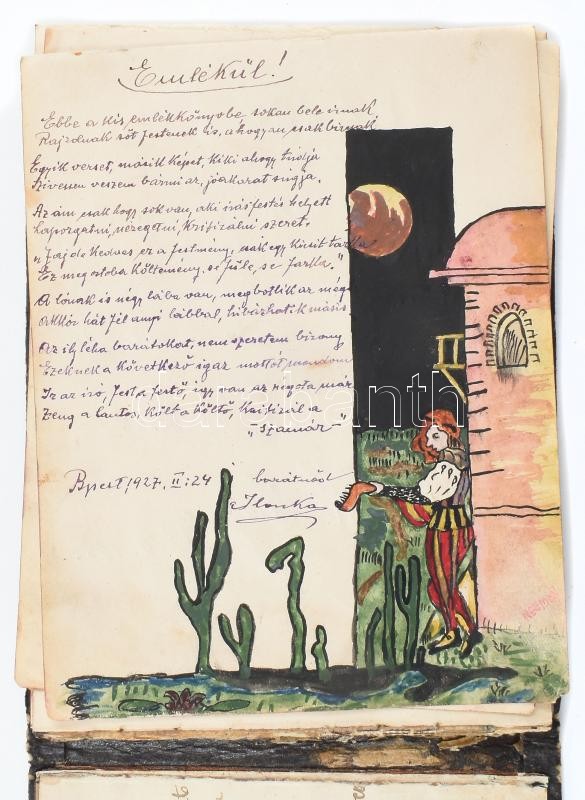 Emlékül!
Ebbe a kis emlékkönyvbe sokan bele irnak,
Rajzolnak sőt festenek is, ahogyan csak birnak
Egyik verset, másik képet, kiki ahogy tudja
Szivesen veszem bármi az, jóakarat súgja.
Az ám csak hogy sok van, aki irás festés helyett
Lapozgatni, nézegetni, kritizálni szeret.
"Jaj de kedves ez a festmény, csak egy kicsit tarka
Ez meg ostoba költemény, se füle, se farka."
A lónak is négy lába van, megbotlik az még
Akkor hát fél ampi lábbal, hibázhatik másis
Az ily léha barátokat, nem szeretem bizony
Ezeknek a következő igaz mottót mondom
Ir az iró, fest a festő így van az régóta már
Zeng a lantos, költ a költő, kritizál a
"Szamár-"
Bpest, 1927. II: 24
barátnőd
Ilonka
darabanth